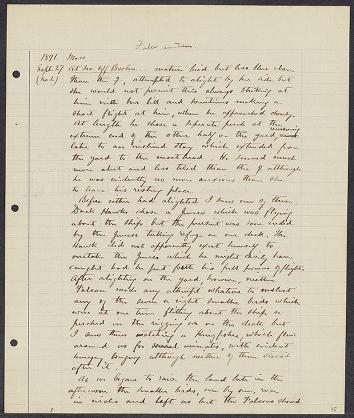 Falco
1891 Mass
Sept. 27 At sea off Boston. - mature bird but less blue
(No 2) than the ♀, attempted to alight by her side but
she would not permit this always striking at
him with her bill and sometimes making a
short flight at him, when he approached closely.
At length he chose a separate perch at the
extreme end of the other half of the yard, removing
later to an inclined stay which extended from
the yard to the mast head. He seemed much
more alert and less tired than the ♀ although
he was evidently no more anxious than she
to leave his resting place.
Before either had alighted I saw one of these
Duck Hawks chase a Junco which was flying
about the ship but the pursuit was soon ended
by the Junco taking refuge on our deck. The
Hawk did not apparently exert himself to
overtake the Junco which he might easily have
caught had he put forth his full powers of flight.
After alighting on the yard, however, neither
Falcon made any attempt whatever to molest
any of the seven or eight smaller birds which
were at one time flitting about the ship or
perched in the rigging or on the deck but
I saw them watching a Kingfisher, which flew
around us for several minutes, with evident
hungry longing although neither of them started
after it.
As we began to raise the land late in the
afternoon the smaller birds, one by one, rose
in circles and left us but the Falcons staid